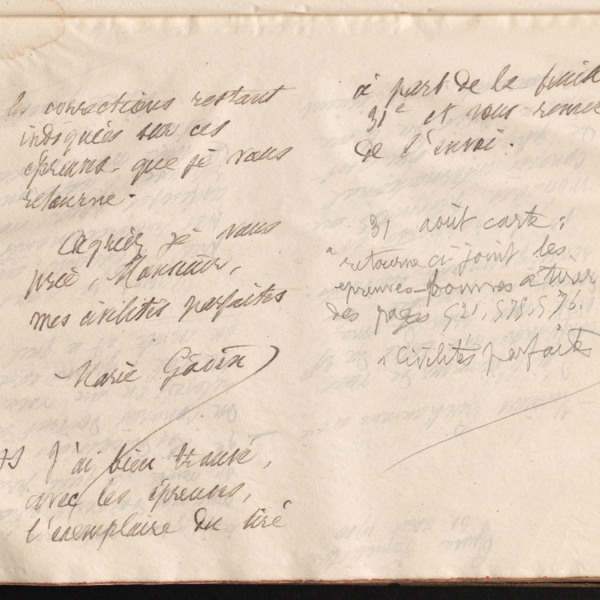 les corrections restant
indiquées sur ces
épreuves que je vous
retourne.
Agréez je vous
prie, Monsieur,
mes civilités parfaites
Marie
PS J'ai bien trouvé,
avec les épreuves,
l'exemplaire du tiré
à part de la feuill
31e et vous remer
de l'envoi.
31 août carte:
retourne ci joint les
épreuves bonnes à tirer
des pages 521, 578, 576.
civilités parfaites